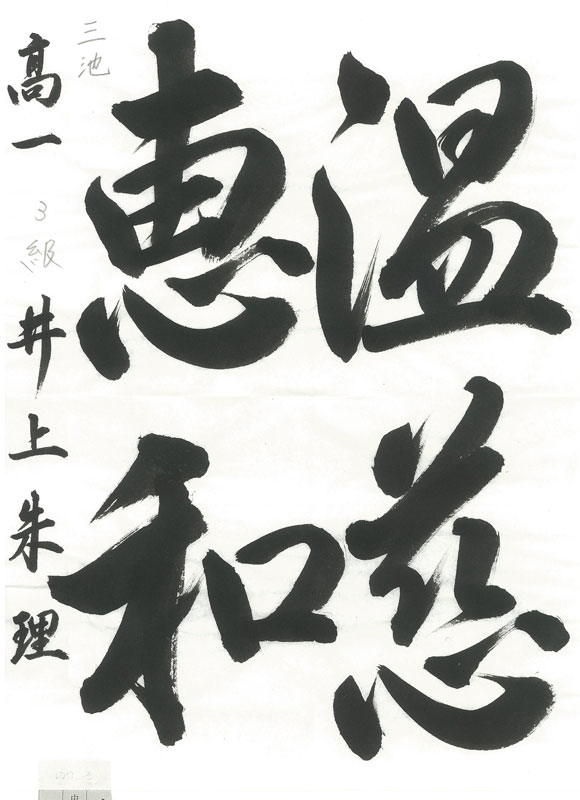 温慈
恵和
三池
高一 3級 井上朱理